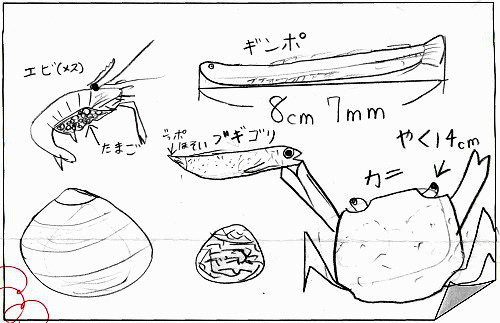 エビ(メス)
たまご
ギンポ
8cm 7mm
シッポ
ほそい
ブギゴリ
カニ
やく14cm